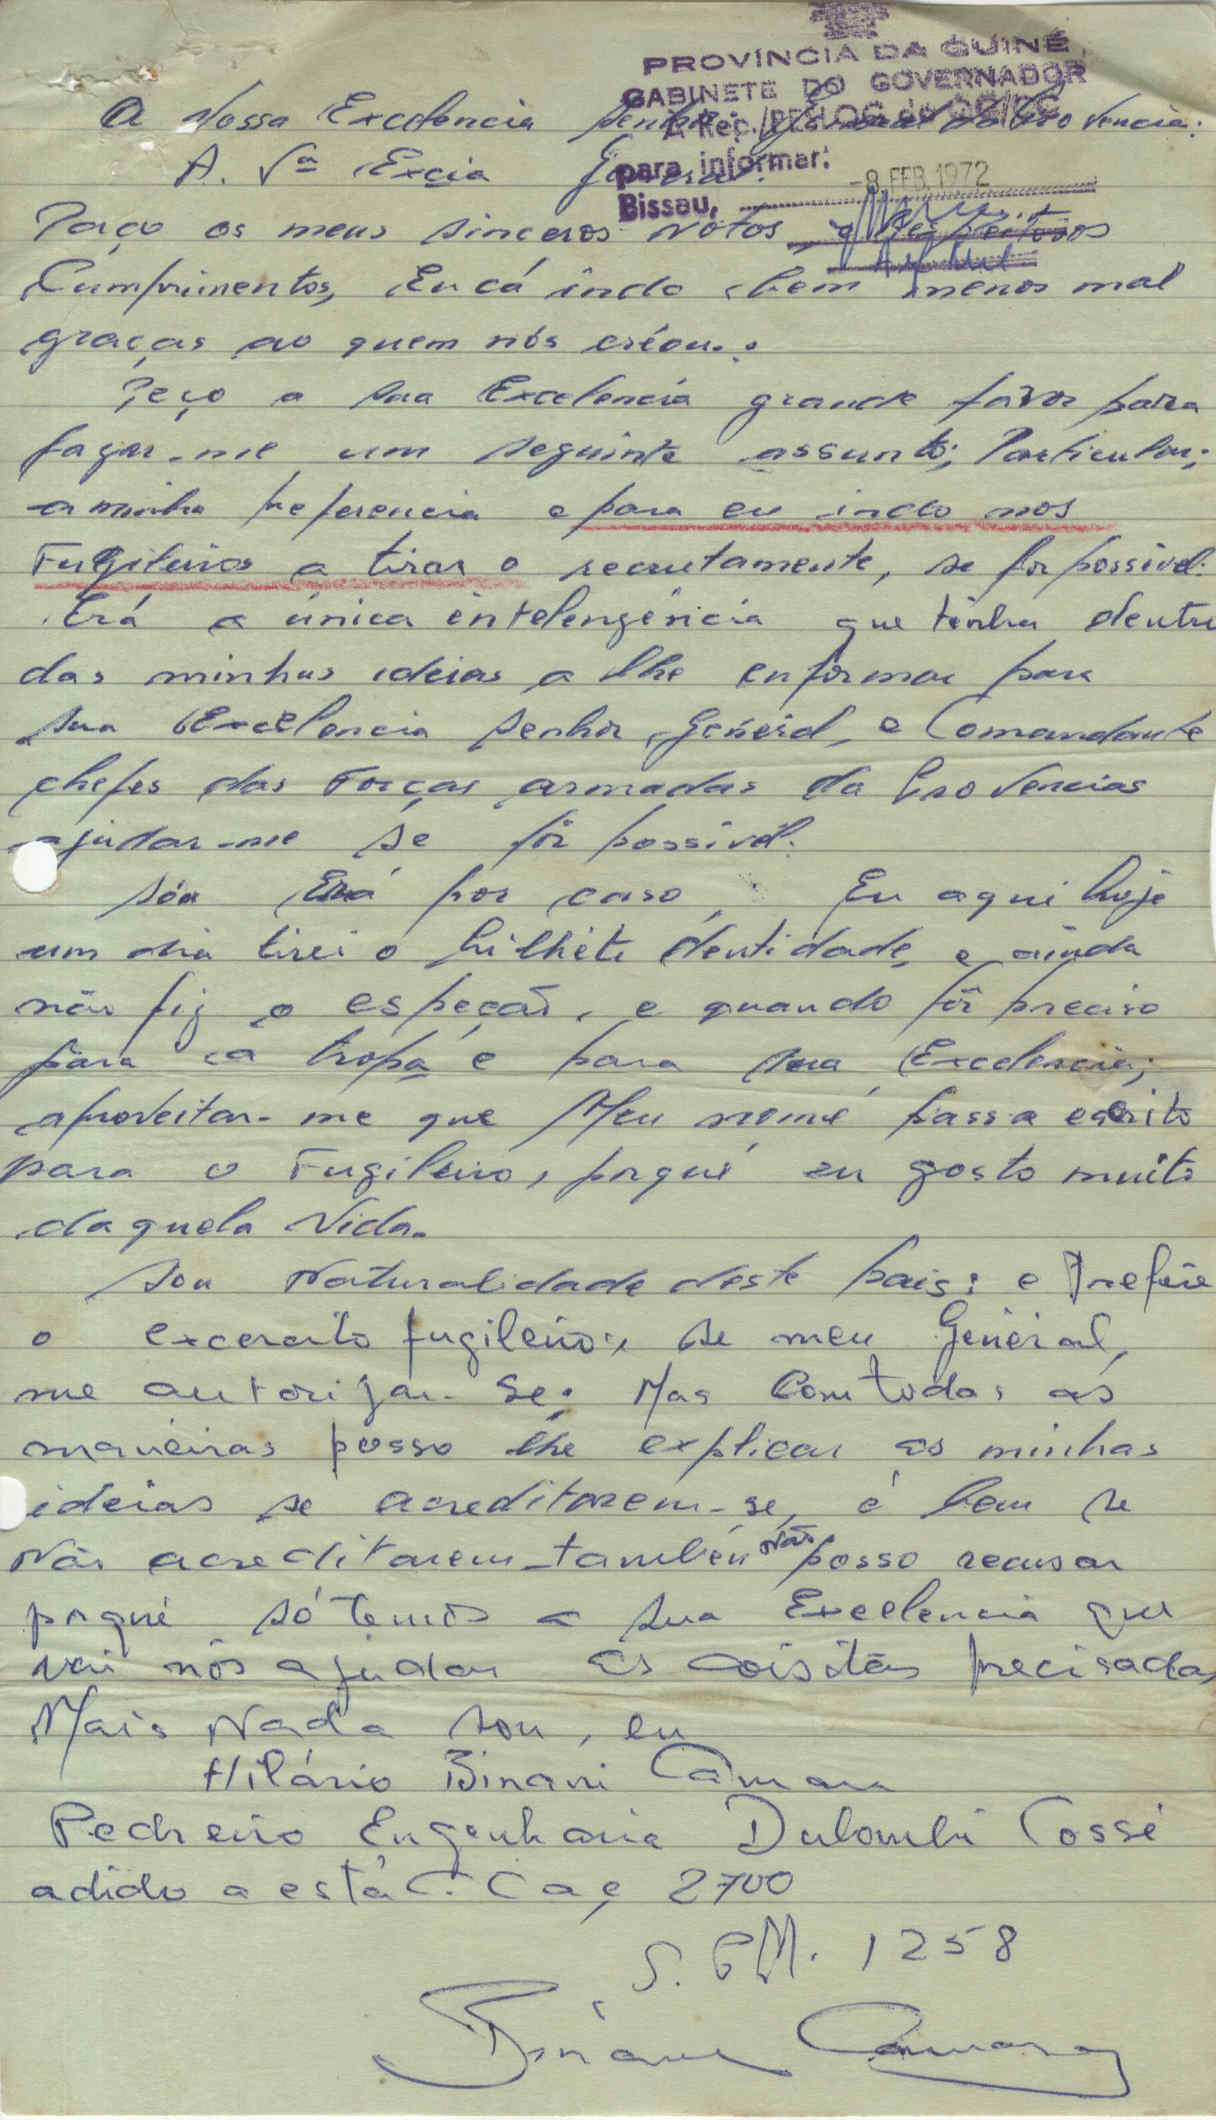 PROVÍNCIA DA GUINÉ
GABINETE DO GOVERNADOR
À Rep./
para informar:
-8. FEB. 1972
Bissau,
A Nossa Excelencia Senhor General da Provencia:
A. Vª Excia General.
Faço os meus sinceros votos, e respeitosos
Cumprimentos, Eu cá indo bem menos mal
graças ao quem nós créou..
Peço a sua Excelencia grande favor para
façar-me um seguinte assunto; Particular;
a minha preferencia e para eu indo nos
Fugileiros a tirar o recrutamente, se for possivel.
Erá a única entelengéncia que tinha dentro
das minhas ideias a lhe enformar para
sua Excelencia Senhor General, e Comandante
chefes das Forças armadas da Provencias
ajudar-me se fôr possível.
Erá por caso, Eu aqui hoje
um dia tirei o bilhéte dentidade, e ainda
não fiz o espeção, e quando fôr preciso
para a tropa e para sua Excelencia;
aproveitar-me que Meu nome passa escrito
para o Fugileiro, porqué eu gosto muito
daquela Vida.
Sou Naturalidade deste pais: e Prefere
o excercito fugileiro, se meu General,
me autorizar-se. Mas Com todas as
maneiras posso lhe explicar as minhas
ideias se acreditarem-se, é bem se
Não acreditarem-também Não posso recusar
porqué só temos a sua Excelencia que
vai nós ajudar as coisitas precisadas
Mais Nada sou, eu
Hilário Binani Câmara
Pedreiro Engenharia Dulombi Cossé
adido a está C. Caç 2700
S.P.M. 1258
Binani Camara